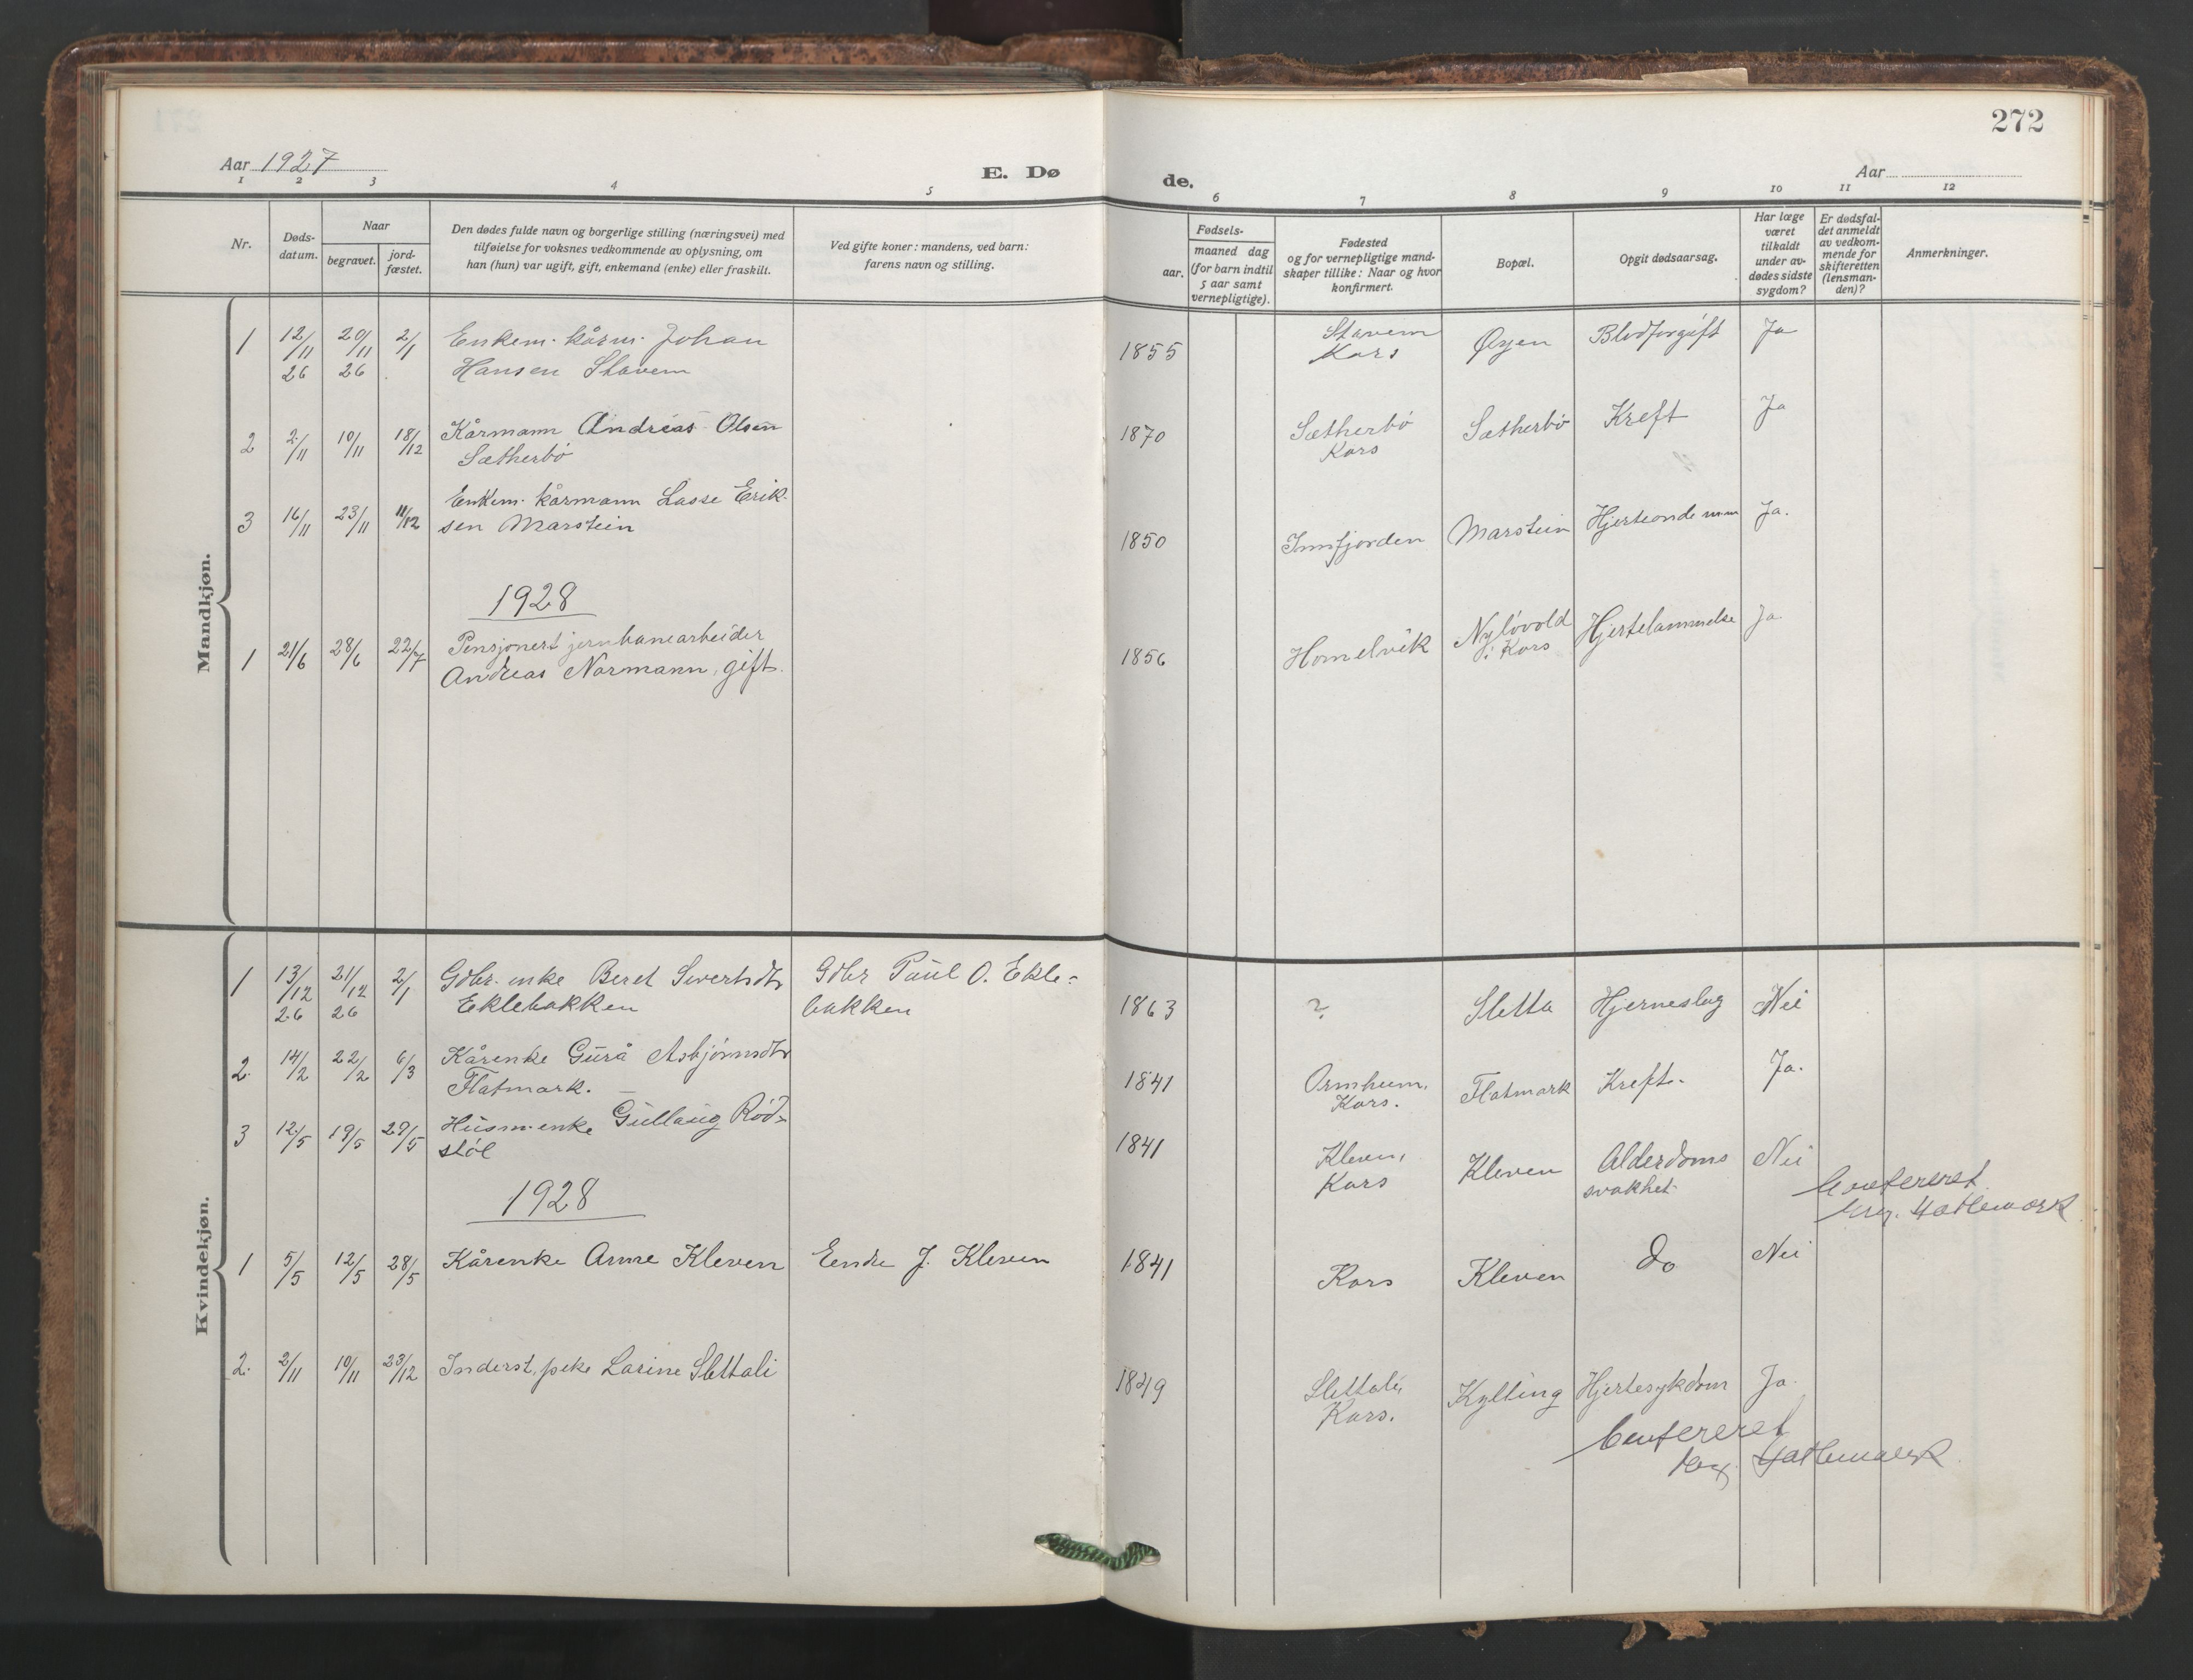 272
Aar 1927
E. Dø
de.
Aar
1 2 3 4 5 6 7 8 9 10 11 12
Nr.
Døds-
datum.
Naar
begravet.
jord-
fæstet.
Den dødes fulde navn og borgerlige stilling (næringsvei) med
tilføielse for voksnes vedkommende av oplysning, om
han (hun) var ugift, gift, enkemand (enke) eller fraskilt.
Ved gifte koner: mandens, ved barn:
farens navn og stilling.
Fødsels-
aar.
maaned dag
(for barn indtil
5 aar samt
vernepligtige).
Fødested
og for vernepligtige mand-
skaper tillike: Naar og hvor
konfirmert.
Bopæl.
Opgit dødsaarsag.
Har læge
været
tilkaldt
under av-
dødes sidste
sygdom?
Er dødsfal-
det anmeldt
av vedkom-
mende for
skifteretten
(lensman-
den)?
Anmerkninger.
Mandkjøn.
1 12/11 26 20/11 26 2/1 Enkem. kårm. Johan
Hansen Stavem
1855 Stavem
Kors Øyen Blodforgift Ja
2 2/11 10/11 18/12 Kårmann Andreas Olsen
Sætherbø
1870 Sætherbø
Kors Sætherbø Kreft Ja
3 16/11 23/11 11/12 Enkem. kårmann Lasse Erik-
sen Marstein
1850 Innfjorden Marstein Hjerteonde m.m Ja.
1928
1 21/6 28/6 22/7 Pensjonert jernbanearbeider
Andreas Normann, gift.
1856 Homelvik Nyløvold
i Kors Hjertelammelse Ja
Kvindekjøn.
1 13/12 26 21/12 26 2/1 Gdbr. enke Beret Sivertsdtr
Eklebakken
Gdbr Paul O. Ekle-
bakken
1863 ? Sletta Hjerneslag Nei
2. 14/2 22/2 6/3 Kårenke Gurå Asbjørnsdtr
Flatmark.
1841 Ormheim,
Kors. Flatmark Kreft. Ja.
3 12/5 19/5 29/5 Husm. enke Gullaug Rød-
støl
1841 Kleven,
Kors Kleven Alderdoms
svakhet Nei
Hattemark
1928
1 5/5 12/5 28/5 Kårenke Anne Kleven Endre J. Kleven
1841 Kors Kleven do Nei
2. 2/11 10/11 23/12 Inderst, pike Larine Slettali
1849 Slettali,
Kors. Kylling Hjertesykdom Ja.
Hattemark